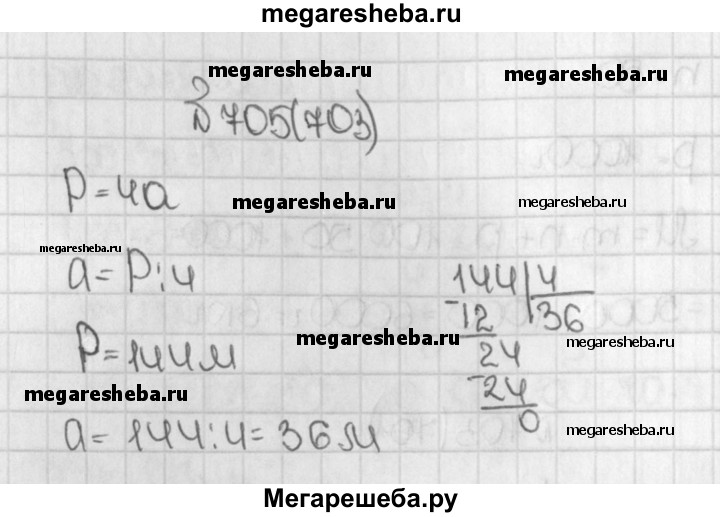 megaresheba.ru
megaresheba.ru
megaresheba.ru
№ 705(703)
P=4a
megaresheba.ru
megaresheba.ru
megaresheba.ru
a=P:4
144|4
-12 36
24
-24
0
P=144м
megaresheba.ru
megaresheba.ru
megaresheba.ru
a=144:4=36м
megaresheba.ru
Мегарешеба.ру